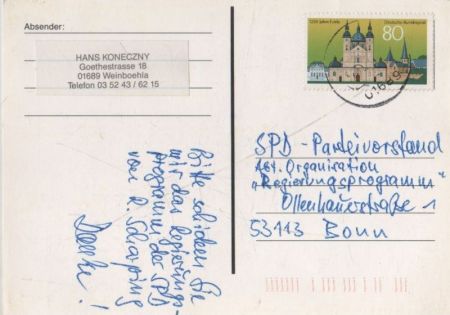 Absender:
HANS KONECZNY
Goethestrasse 18
01689 Weinboehla
Telefon 03 52 43 / 62 15
Bitte schicken Sie
mir das Regierungs-
programm der SPD
von R. Scharping
Danke!
1250 Jahre Fulda
Deutsche Bundespost
80
SPD - Parteivorstand
Abt. Organisation
"Regierungsprogramm"
Ollenhauerstraße 1
53113 Bonn